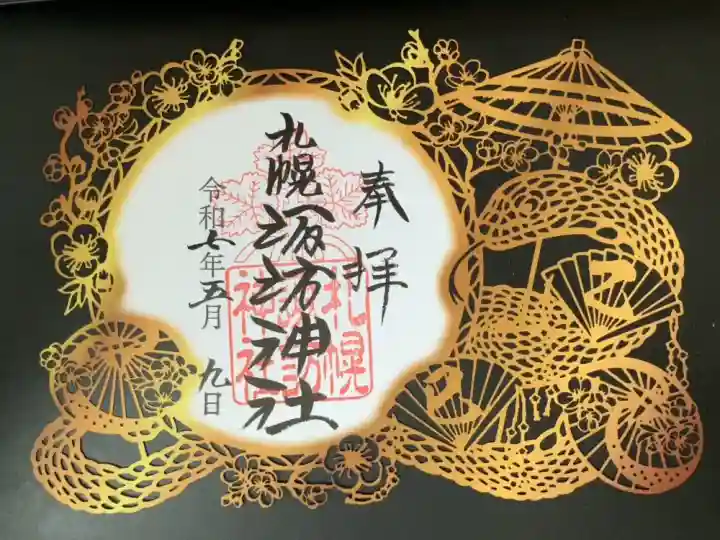 奉拝
札幌諏訪神社
令和七年五月九日
札幌
諏訪
神社
巳
巳